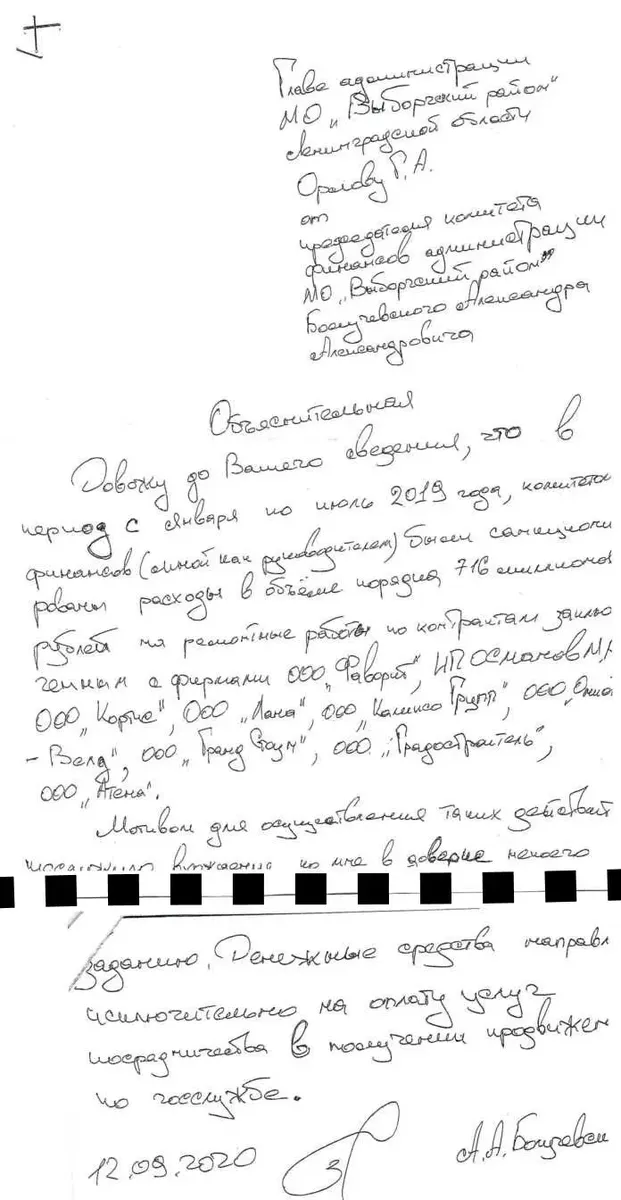 Главе администрации
МО „Выборгский район"
Ленинградской области
Орлову Г.А.
от
председателя комитета
финансов администрации
МО „Выборгский район"
Болучевского Александра
Александровича
Объяснительная
Довожу до Вашего сведения, что в
период с января по июль 2019 года, комитетом
финансов (мной как руководителем) были санкциони
рованы расходы в объёме порядка 716 миллионов
рублей на ремонтные работы по контрактам заклю
ченным с фирмами ООО „Фаворит", ИП Османов М.
ООО „Кортис", ООО „Лана", ООО „Калипсо Групп", ООО
- Велд", ООО „Гранд Стоун", ООО „Градостроитель",
ООО „Атена".
Мотивом для осуществления таких действий
ко мне в доверие некоего
заданию. Денежные средства направл
исключительно на оплату услуг
посредничества в получении продвижен
по госслужбе.
12.09.2020 А.А. Болучевск